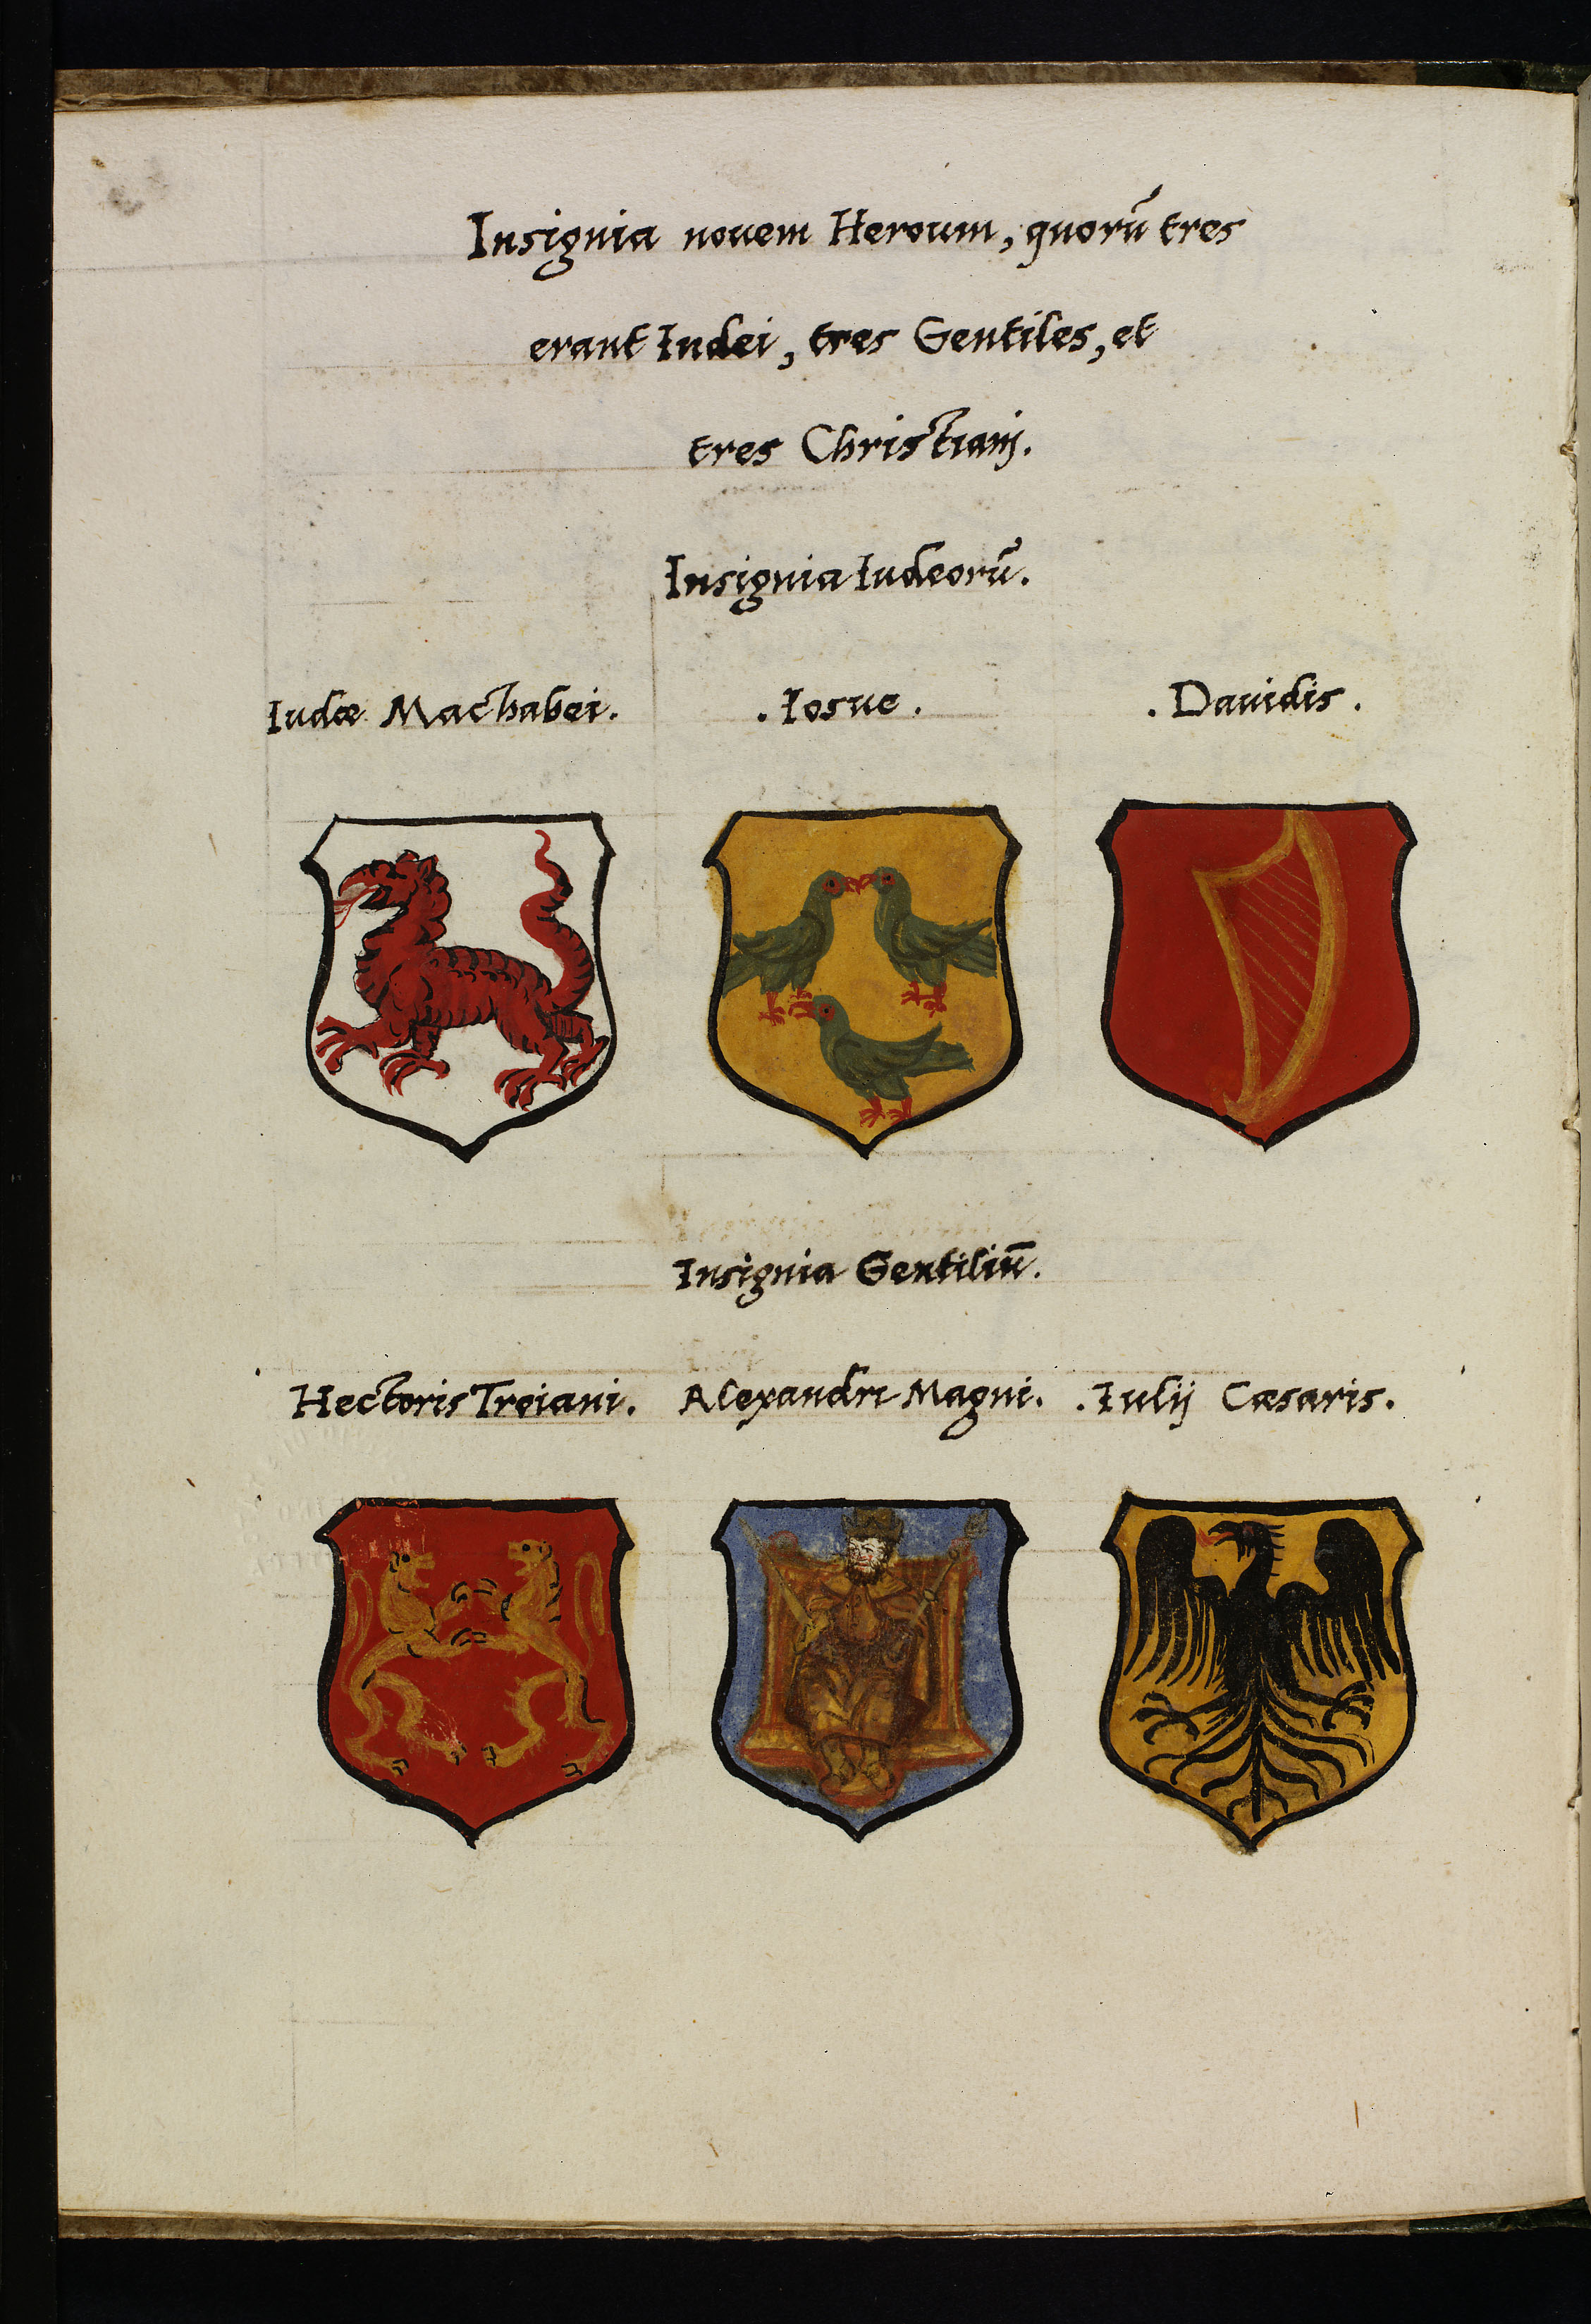 Insignia novem Heroum, quorū tres
erant Iudei, tres Gentiles, et
tres Christianj.
Insignia Iudeorū.
Iudæ Machabei.
. Iosue .
. Dauidis .
Insignia Gentiliū.
Hectoris Troiani.
Alexandri Magni.
. Iulij Cæsaris.